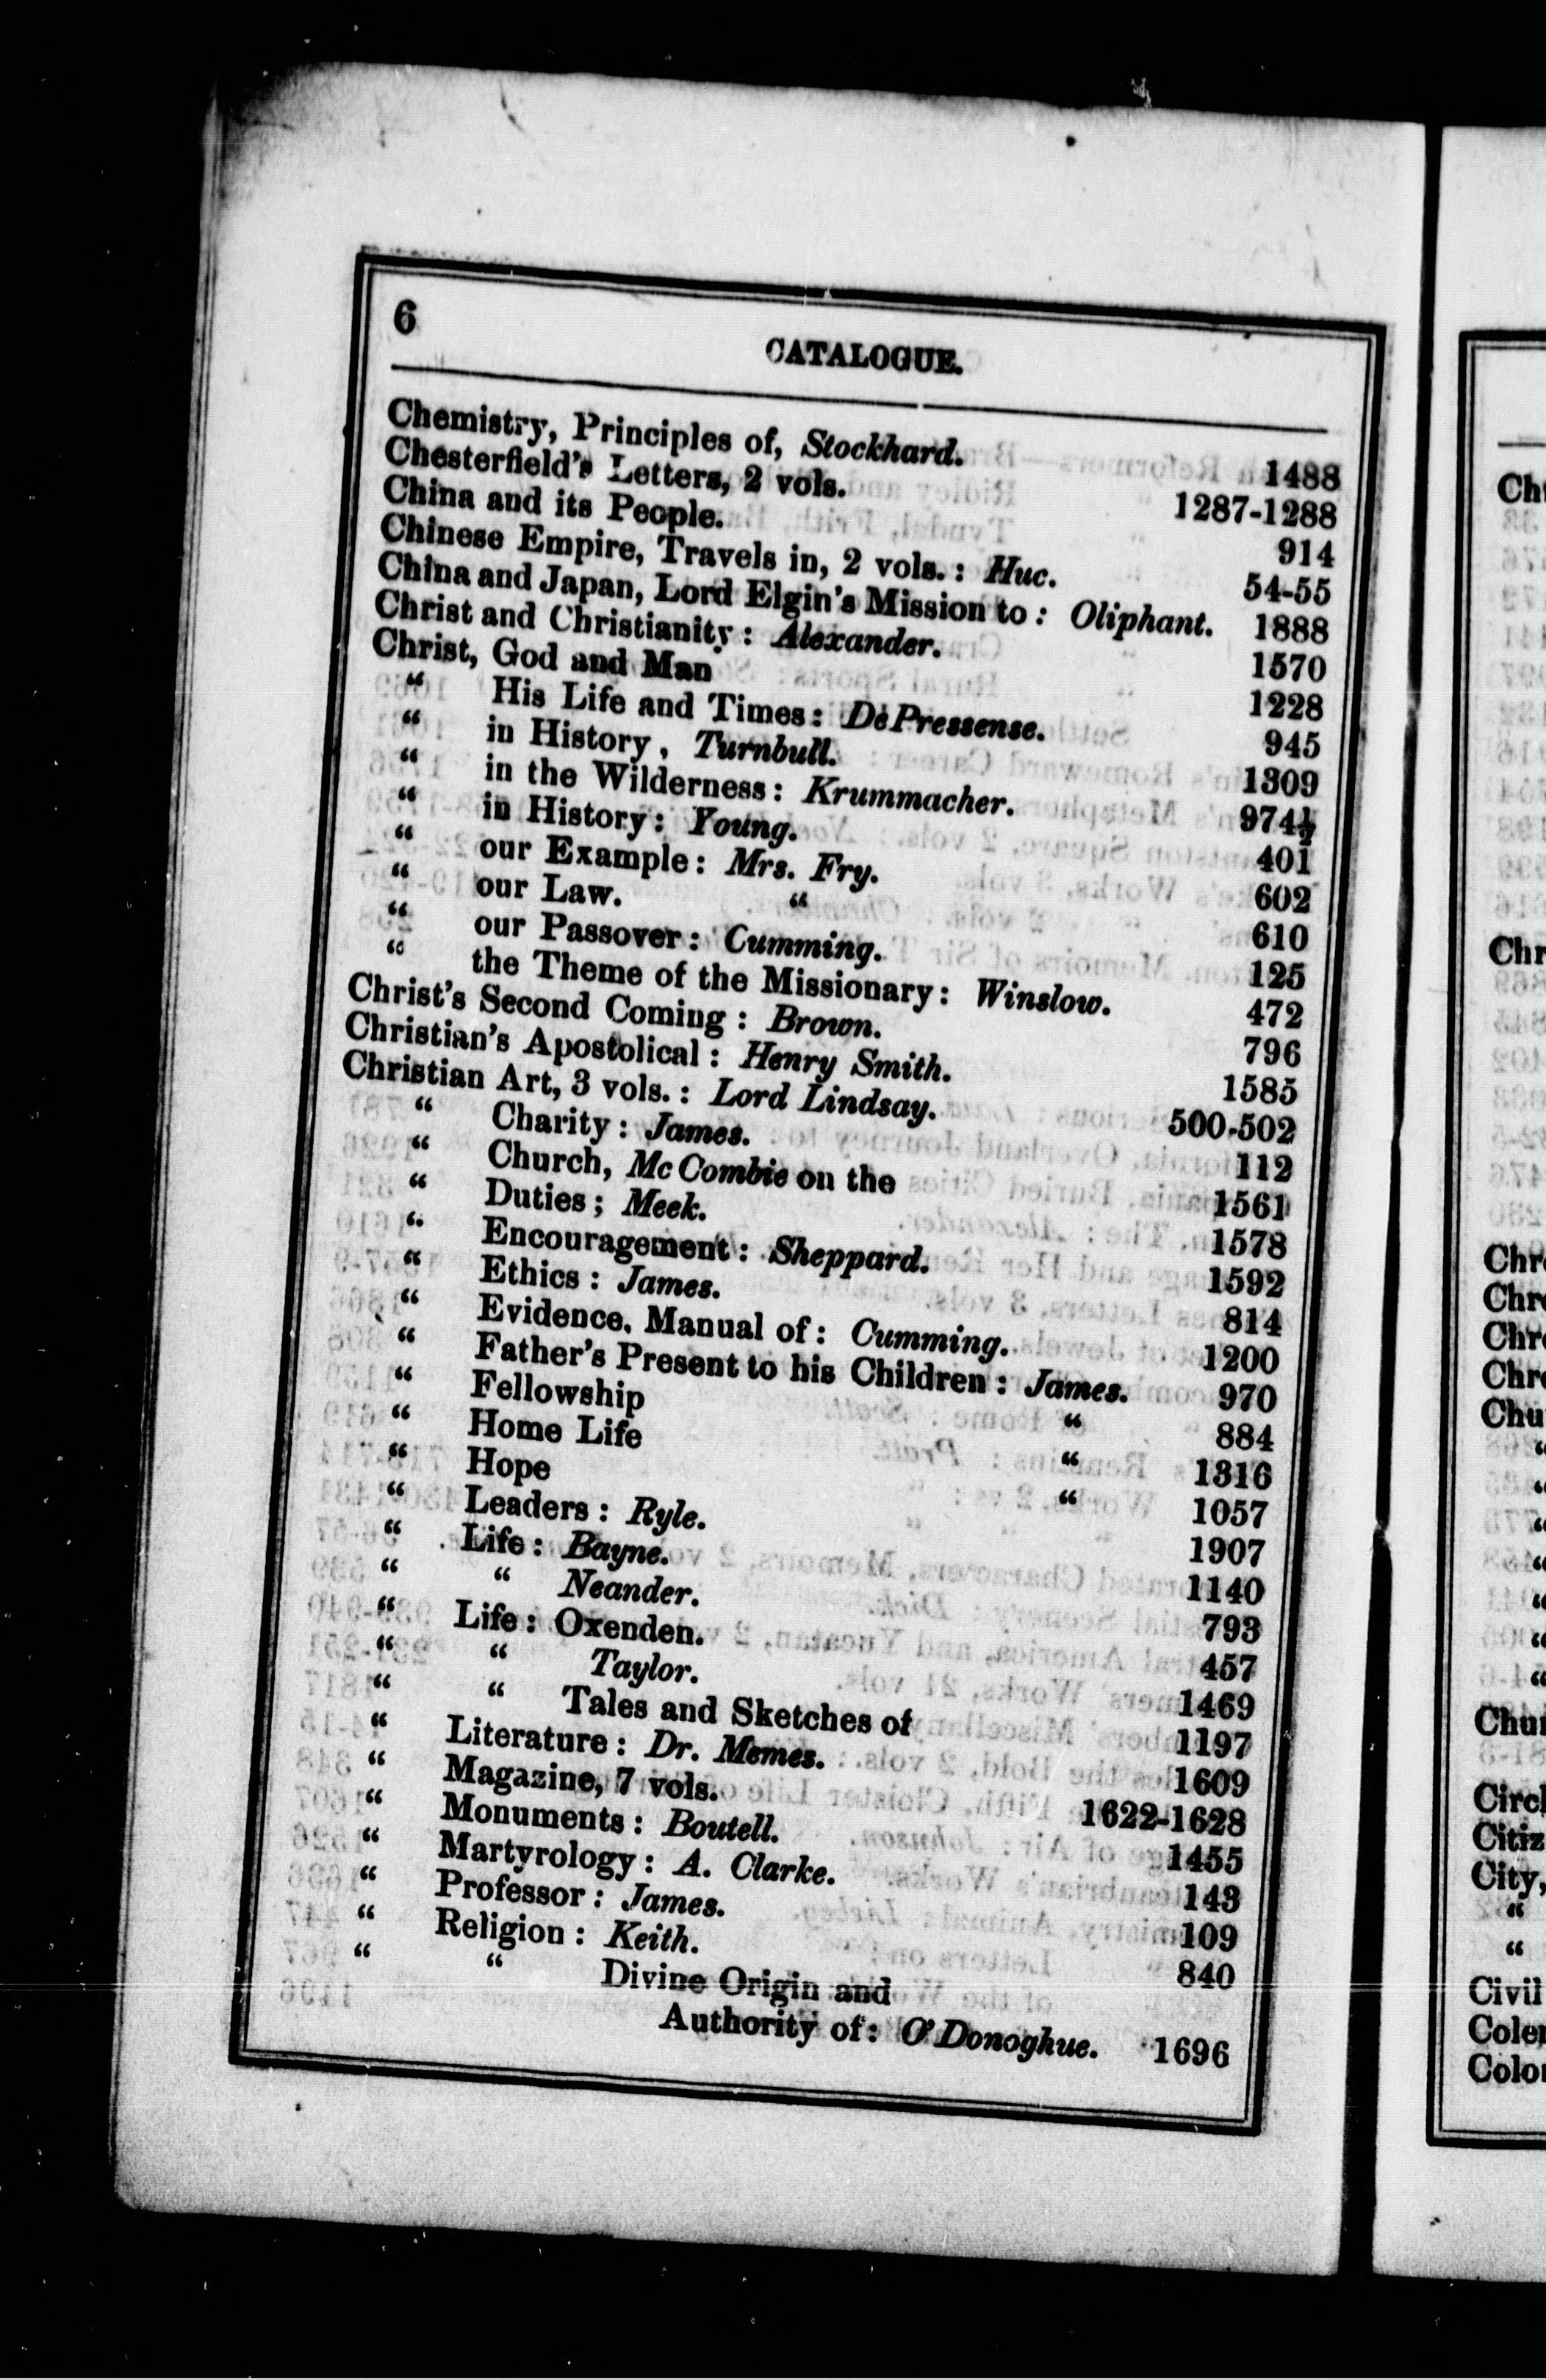 6
CATALOGUE.
Chemistry, Principles of, Stockhard. 1488
Chesterfield's Letters, 2 vols. 1287-1288
China and its People. 914
Chinese Empire, Travels in, 2 vols. : Huc. 54-55
China and Japan, Lord Elgin's Mission to : Oliphant. 1888
Christ and Christianity : Alexander. 1570
Christ, God and Man 1228
" His Life and Times : De Pressense. 945
" in History, Turnbull. 1309
" in the Wilderness : Krummacher. 974½
" in History : Young. 401
" our Example : Mrs. Fry. 602
" our Law. " 610
" our Passover : Cumming. 125
" the Theme of the Missionary : Winslow. 472
Christ's Second Coming : Brown. 796
Christian's Apostolical : Henry Smith. 1585
Christian Art, 3 vols. : Lord Lindsay. 500-502
" Charity : James. 112
" Church, McCombie on the 1561
" Duties ; Meek. 1578
" Encouragement : Sheppard. 1592
" Ethics : James. 814
" Evidence, Manual of : Cumming. 1200
" Father's Present to his Children : James. 970
" Fellowship " 884
" Home Life " 1316
" Hope " 1057
" Leaders : Ryle. 1907
" Life : Bayne. 1140
" " Neander. 793
" Life : Oxenden. 457
" " Taylor. 1469
" " Tales and Sketches of 1197
" Literature : Dr. Memes. 1609
" Magazine, 7 vols. 1622-1628
" Monuments : Boutell. 1455
" Martyrology : A. Clarke. 143
" Professor : James. 109
" Religion : Keith. 840
" " Divine Origin and
Authority of : O'Donoghue. 1696
Chr
Chr
Chr
Chr
Chr
Chu
"
"
"
"
"
"
"
Chu
Circl
Citiz
City,
"
"
Civil
Coler
Color